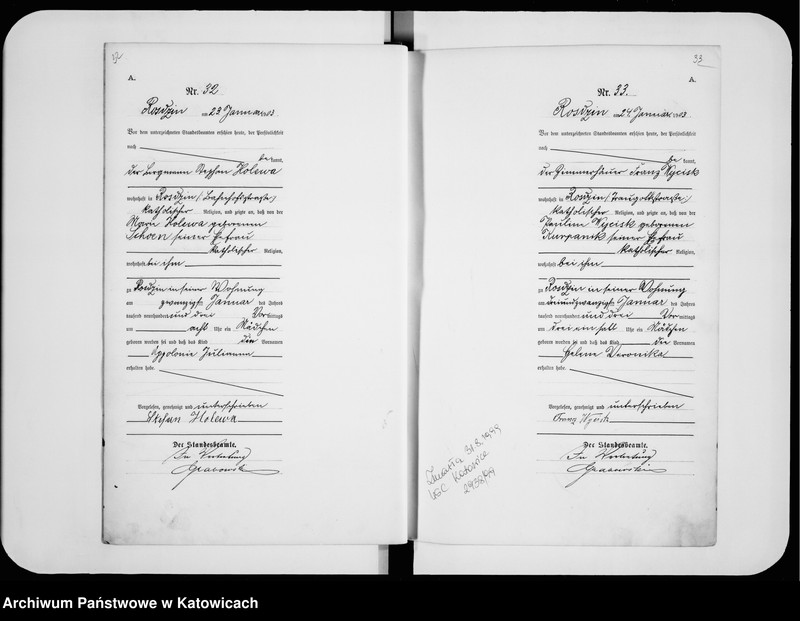 32
A.
Nr. 32
Rosdzin am 23 Januar 1903
Vor dem unterzeichneten Standesbeamten erschien heute, der Persönlichkeit
nach
be kannt,
der Bergmann Stephan Holewa
wohnhaft in Rosdzin (Bahnhofstrasse)
katholischer Religion, und zeigte an, daß von der
Marie Holewa geborenen
Schoen seiner Ehefrau
katholischer Religion,
wohnhaft bei ihm
zu Rosdzin in seiner Wohnung
am zwanzigsten Januar des Jahres
tausend neunhundert und drei Vormittags
um acht Uhr ein Mädchen
geboren worden sei und daß das Kind die Vornamen
Appolonie Julianna
erhalten habe.
Vorgelesen, genehmigt und unterschrieben
Stephan Holewa
Der Standesbeamte.
In Vertretung
33
A.
Nr. 33.
Rosdzin am 24 Januar 1903
Vor dem unterzeichneten Standesbeamten erschien heute, der Persönlichkeit
nach
be kannt,
der Zimmerhäuer Franz Wycisk
wohnhaft in Rosdzin (Traugottstrasse)
katholischer Religion, und zeigte an, daß von der
Pauline Wycisk geborenen
Kurpanik seiner Ehefrau
katholischer Religion,
wohnhaft bei ihm
zu Rosdzin in seiner Wohnung
am dreiundzwanzigsten Januar des Jahres
tausend neunhundert und drei Vormittags
um drei ein halb Uhr ein Mädchen
geboren worden sei und daß das Kind die Vornamen
Helene Veronika
erhalten habe.
Vorgelesen, genehmigt und unterschrieben
Franz Wycisk
Der Standesbeamte.
In Vertretung
Zmarła 31.8.1999
USC Katowice
2938/99
Archiwum Państwowe w Katowicach